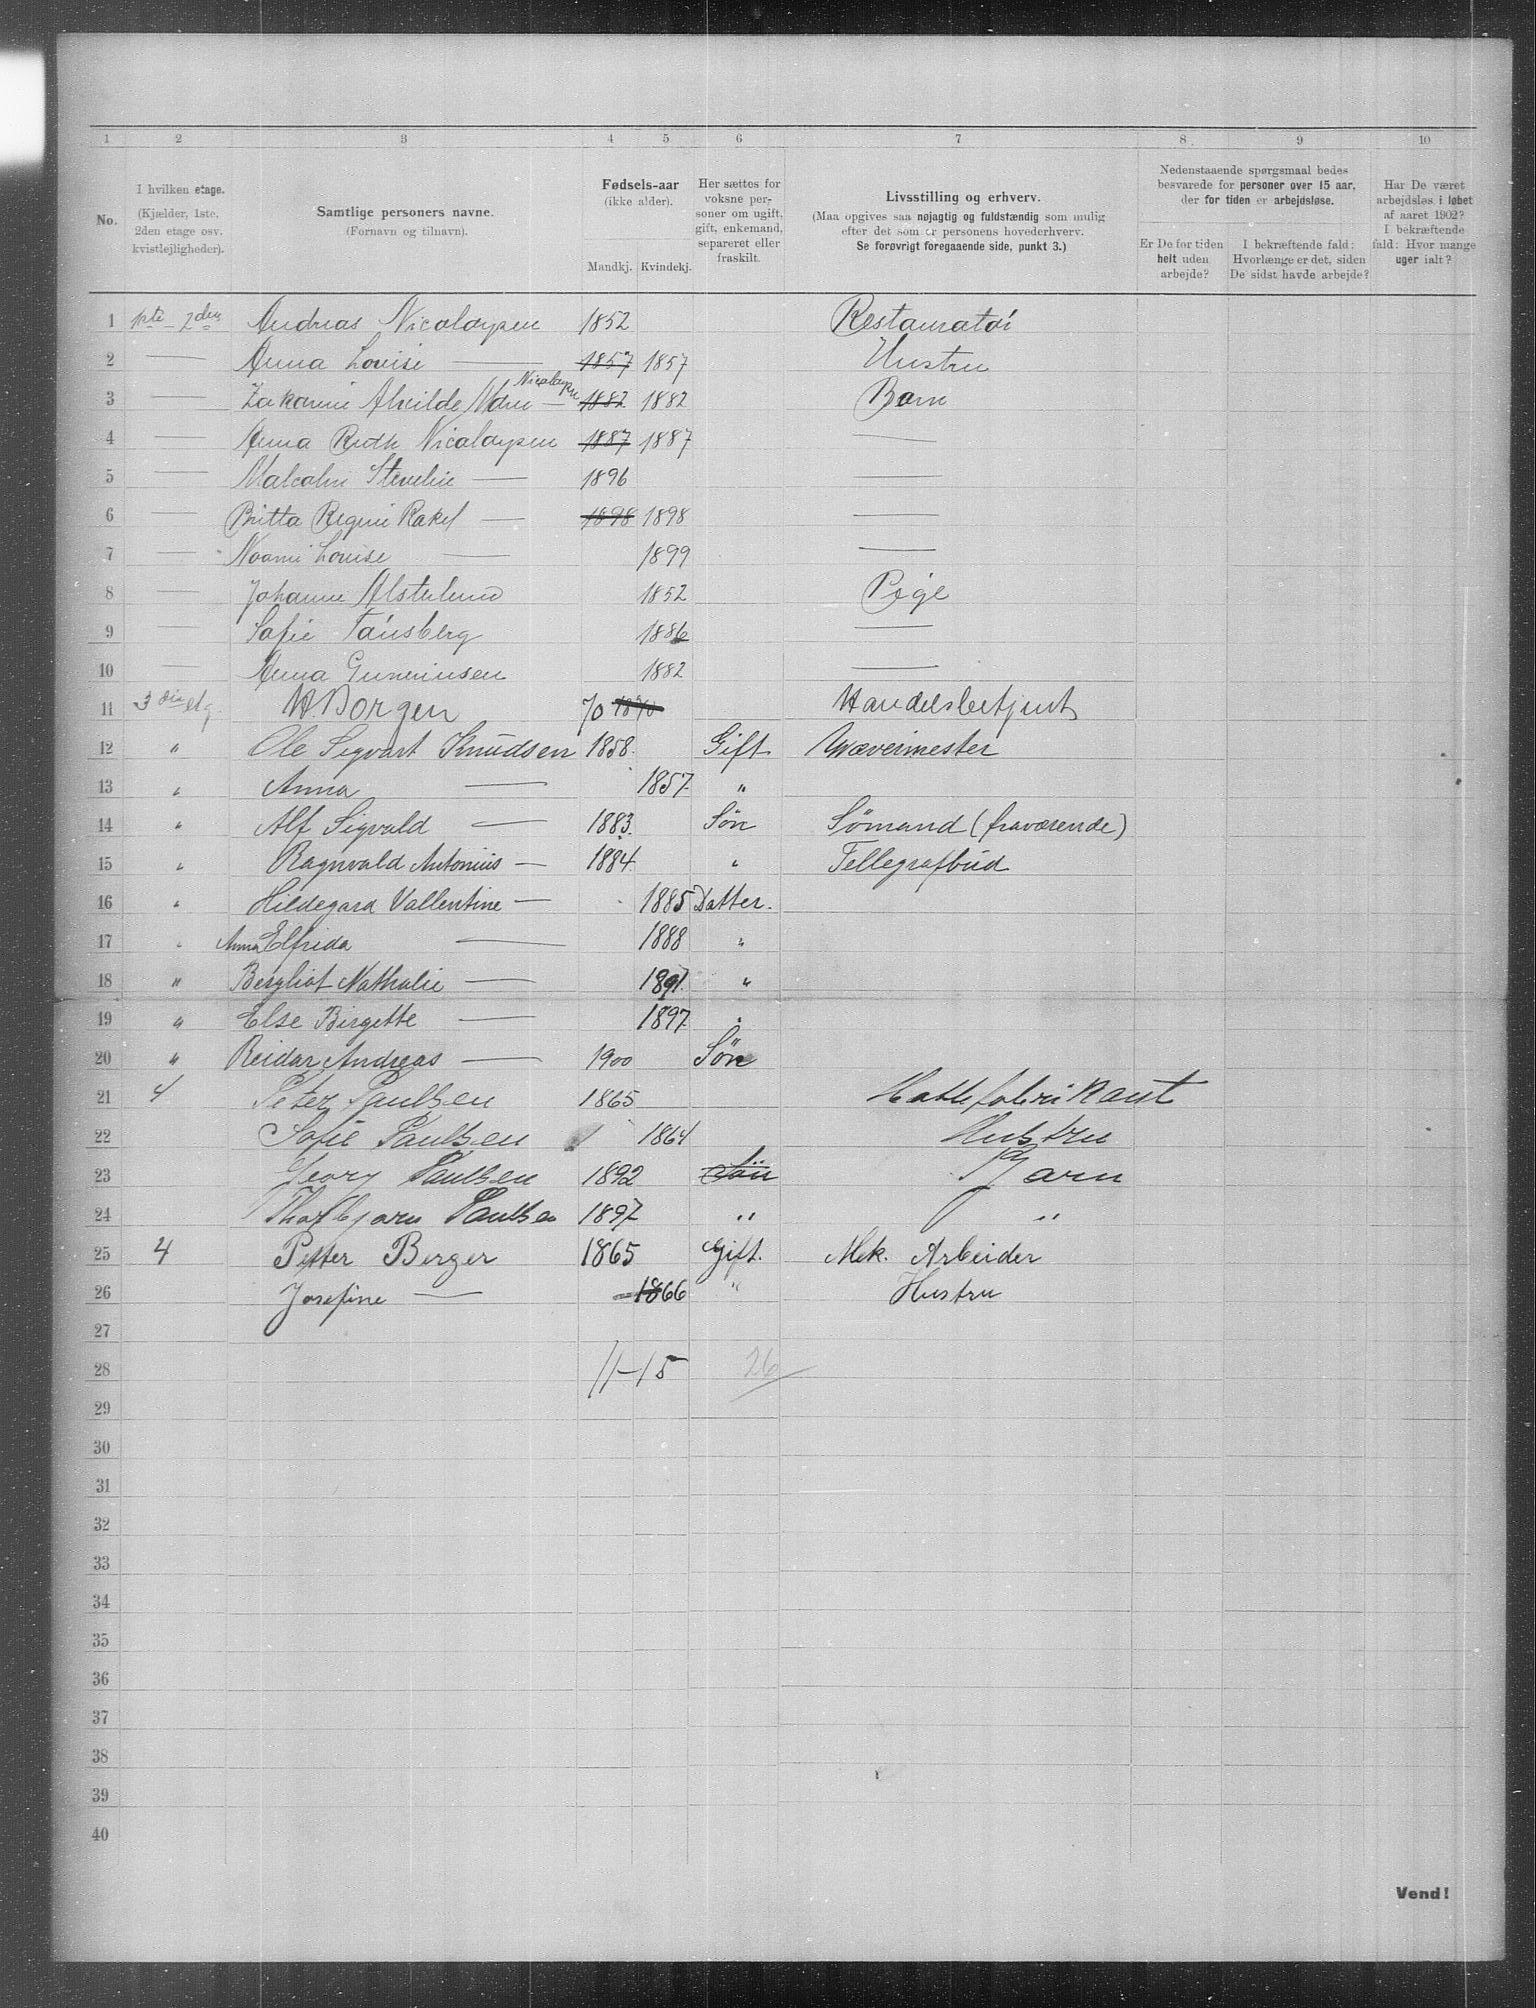 1 2 3 4 5 6 7 8 9 10
No.
I hvilken etage.
(Kjælder, 1ste,
2den etage osv.
kvistlejligheder).
Samtlige personers navne.
(Fornavn og tilnavn).
Fødsels-aar
(ikke alder).
Mandkj. Kvindekj.
Her sættes for
voksne per-
soner om ugift,
gift, enkemand,
separeret eller
fraskilt.
Livsstilling og erhverv.
(Maa opgives saa nøjagtig og fuldstændig som mulig
efter det som er personens hovederhverv.
Se forøvrigt foregaaende side, punkt 3.)
Nedenstaaende spørgsmaal bedes
besvarede for personer over 15 aar,
der for tiden er arbejdsløse.
Er De for tiden
helt uden
arbejde?
I bekræftende fald:
Hvorlænge er det, siden
De sidst havde arbejde?
Har De været
arbejdsløs i løbet
af aaret 1902?
I bekræftende
fald: Hvor mange
uger ialt?
1 pte 2den Andreas Nicolaysen 1852 Restauratør
2 — Anna Louise — 1857 1857 Hustru
Nicolaysen
3 — Zakarine Alvilde — 1882 1882 Barn
4 — Anna Ruth Nicolaysen 1887 1887 —
5 — Malcolm — 1896 —
6 — Britta Regine Rakel — 1898 1898 —
7 — Noami Louise — 1899 —
8 — Johanne Alsterlund 1852 Pige
9 — Sofie Tønsberg 1886 —
10 — Anna Gunerius­sen 1882 —
11 3die etg Borgen 70 1870 Handelsbetjent
12 " Ole Sigvart Knudsen 1858. Gift Vævermester
13 " Anna — 1857. "
14 " Alf Sigvald — 1883. Søn Sømand (fraværende)
15 " Ragnvald Antonius — 1884. " Tellegrafbud
16 " Hildegard Vallentine — 1885 Datter.
17 " Anna Elfrida — 1888 "
18 " Bergliot Nathalie — 1891. "
19 " Else Birgette — 1897. "
20 " Reidar Andreas — 1900 Søn
21 4 Peter Paulsen 1865 Hattefabrikant
22 Sofie Paulsen 1864 Hustru
23 Georg Paulsen 1892 Søn Barn
24 Thorbjørn Paulsen 1897 " "
25 4 Petter Berger 1865 Gift. Mek. Arbeider
26 Josefine — 1866 " Hustru
27
28 11-15 26
29
30
31
32
33
34
35
36
37
38
39
40
Vend!